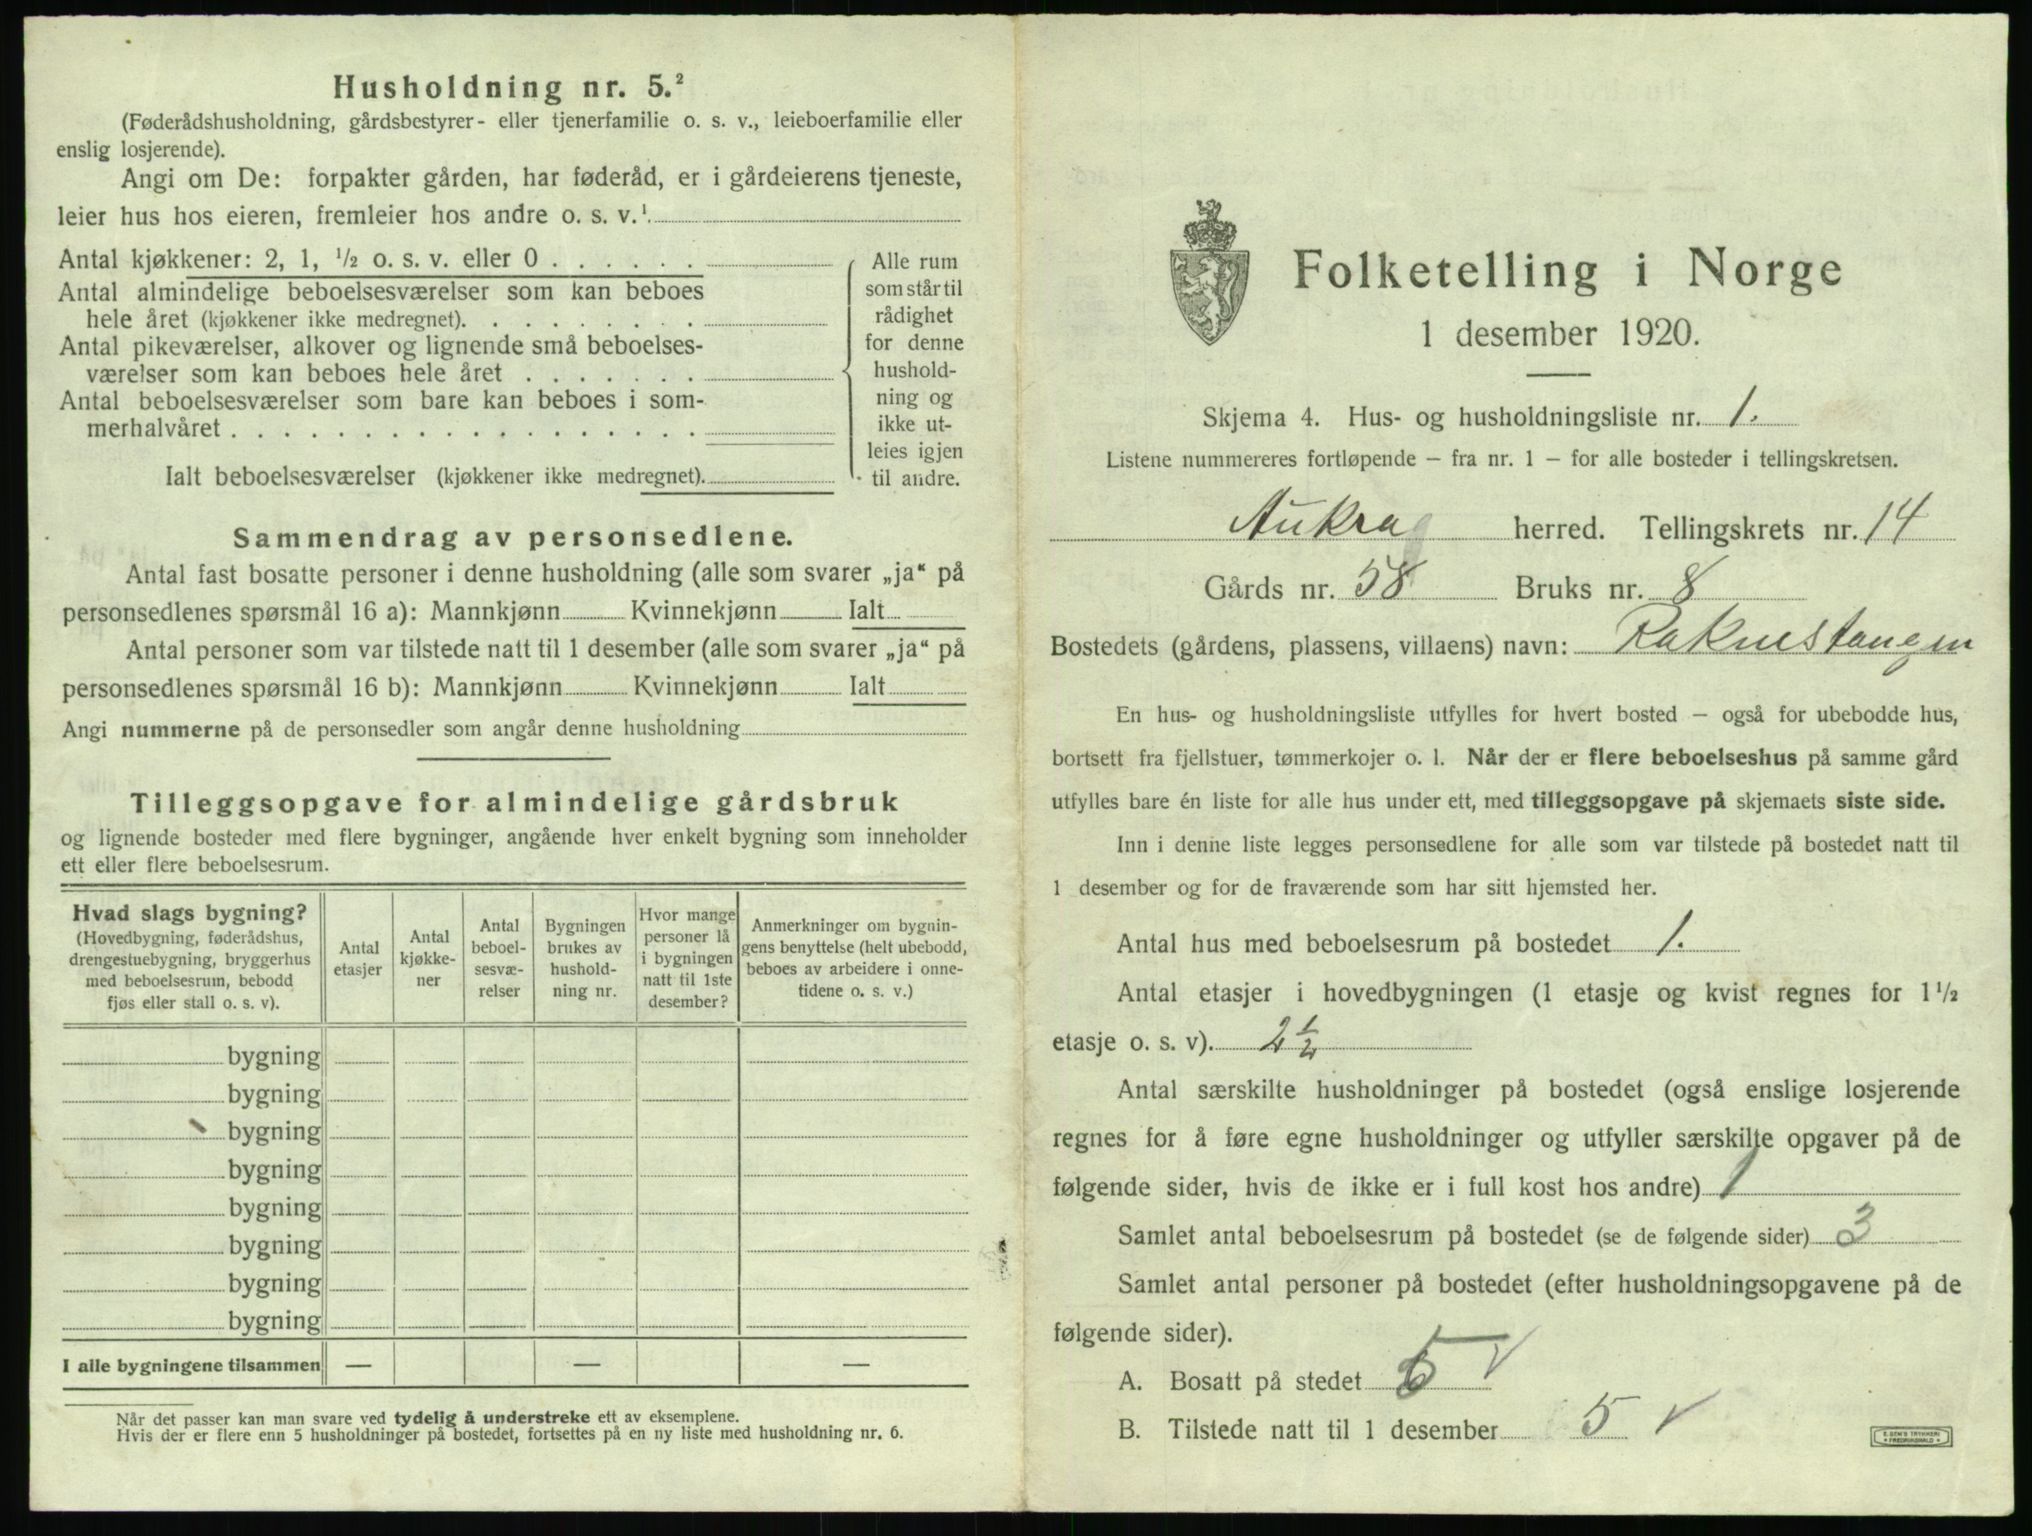 Husholdning nr. 5.²
(Føderådshusholdning, gårdsbestyrer- eller tjenerfamilie o. s. v., leieboerfamilie eller
enslig losjerende).
Angi om De: forpakter gården, har føderåd, er i gårdeierens tjeneste,
leier hus hos eieren, fremleier hos andre o. s. v.¹
Antal kjøkkener: 2, 1, ½ o. s. v. eller 0 . . . . . .
Antal almindelige beboelsesværelser som kan beboes
hele året (kjøkkener ikke medregnet). . . . . . . . .
Antal pikeværelser, alkover og lignende små beboelses-
værelser som kan beboes hele året . . . . . . .
Antal beboelsesværelser som bare kan beboes i som-
merhalvåret . . . . . . . . . . . . . . . . . .
Ialt beboelsesværelser (kjøkkener ikke medregnet).
Alle rum
som står til
rådighet
for denne
hushold-
ning og
ikke ut-
leies igjen
til andre.
Sammendrag av personsedlene.
Antal fast bosatte personer i denne husholdning (alle som svarer „ja“ på
personsedlenes spørsmål 16 a): Mannkjønn Kvinnekjønn Ialt
Antal personer som var tilstede natt til 1 desember (alle som svarer „ja“ på
personsedlenes spørsmål 16 b): Mannkjønn Kvinnekjønn Ialt
Angi nummerne på de personsedler som angår denne husholdning
Tilleggsopgave for almindelige gårdsbruk
og lignende bosteder med flere bygninger, angående hver enkelt bygning som inneholder
ett eller flere beboelsesrum.
Hvad slags bygning?
(Hovedbygning, føderådshus,
drengestuebygning, bryggerhus
med beboelsesrum, bebodd
fjøs eller stall o. s. v).
Antal
etasjer
Antal
kjøkke-
ner
Antal
beboel-
sesvæ-
relser
Bygningen
brukes av
hushold-
ning nr.
Hvor mange
personer lå
i bygningen
natt til 1ste
desember?
Anmerkninger om bygnin-
gens benyttelse (helt ubebodd,
beboes av arbeidere i onne-
tidene o. s. v.)
bygning
bygning
bygning
bygning
bygning
bygning
bygning
bygning
I alle bygningene tilsammen — — —
Når det passer kan man svare ved tydelig å understreke ett av eksemplene.
Hvis der er flere enn 5 husholdninger på bostedet, fortsettes på en ny liste med husholdning nr. 6.
Folketelling i Norge
1 desember 1920.
Skjema 4. Hus- og husholdningsliste nr. 1.
Listene nummereres fortløpende – fra nr. 1 – for alle bosteder i tellingskretsen.
Aukra herred. Tellingskrets nr. 14
Gårds nr. 58 Bruks nr. 8
Bostedets (gårdens, plassens, villaens) navn: Raknestangen
En hus- og husholdningsliste utfylles for hvert bosted – også for ubebodde hus,
bortsett fra fjellstuer, tømmerkojer o. l. Når der er flere beboelseshus på samme gård
utfylles bare én liste for alle hus under ett, med tilleggsopgave på skjemaets siste side.
Inn i denne liste legges personsedlene for alle som var tilstede på bostedet natt til
1 desember og for de fraværende som har sitt hjemsted her.
Antal hus med beboelsesrum på bostedet 1.
Antal etasjer i hovedbygningen (1 etasje og kvist regnes for 1½
etasje o. s. v). 2½
Antal særskilte husholdninger på bostedet (også enslige losjerende
regnes for å føre egne husholdninger og utfyller særskilte opgaver på de
følgende sider, hvis de ikke er i full kost hos andre) 1
Samlet antal beboelsesrum på bostedet (se de følgende sider) 3
Samlet antal personer på bostedet (efter husholdningsopgavene på de
følgende sider).
A. Bosatt på stedet 5 √
B. Tilstede natt til 1 desember 5 √